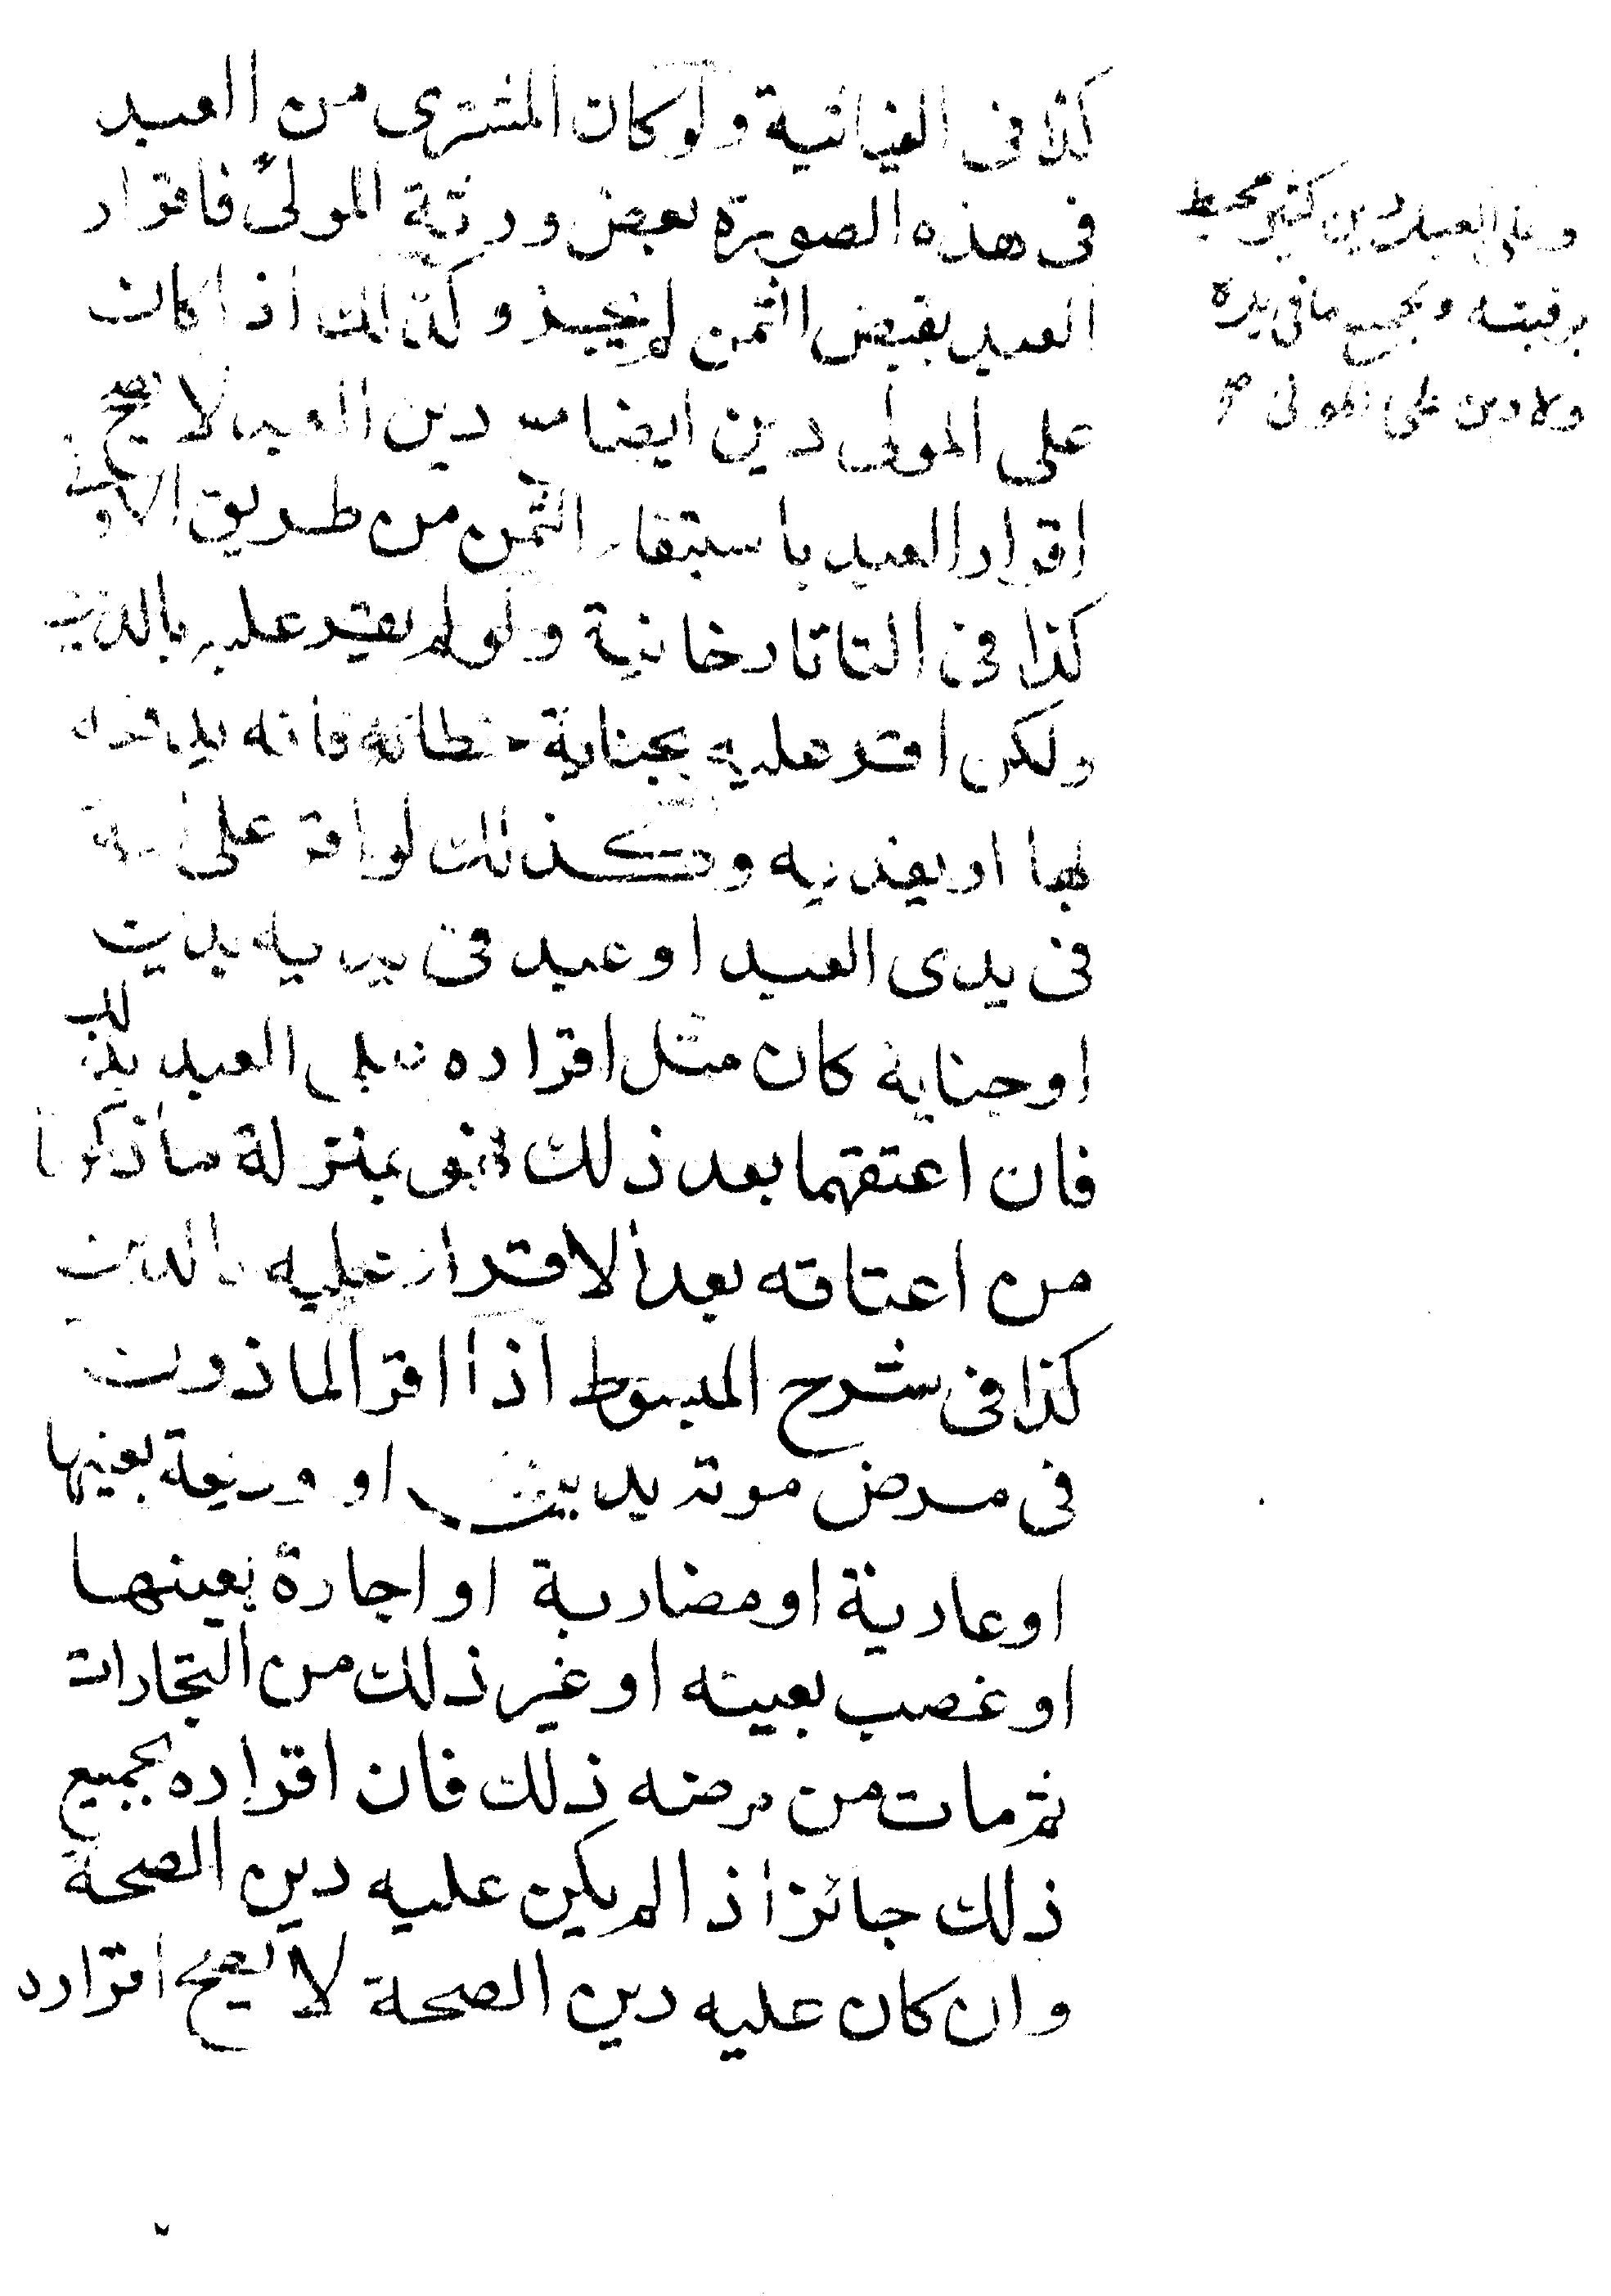 كذا فى الغياثية ولو كان المشترى من العبد
فى هذه الصورة بعض ورثة المولى فاقرار
العبد بقبض الثمن لم يجز وكذلك اذا كان
على المولى دين ايضا مع دين العبد لا يصح
اقرار العبد باستيفاء الثمن من طريق الاولى
كذا فى التاتارخانية ولو لم يقر عليه بالدين
ولكن اقر عليه بجناية خطاء فانه يدفعه
بها او يفديه وكذلك لو اقر على امة
فى يدى العبد او عبد فى يديه بدين
او جناية كان مثل اقراره على العبد بذلك
فان اعتقهما بعد ذلك فهو بمنزلة ما ذكرنا
من اعتاقه بعد الاقرار عليه بالدين
كذا فى شرح المبسوط اذا اقر الماذون
فى مرض موته بدين او وديعة بعينها
او عارية او مضاربة او اجارة بعينها
او غصب بعينه او غير ذلك من التجارات
ثم مات من مرضه ذلك فان اقراره بجميع
ذلك جائز اذا لم يكن عليه دين الصحة
وان كان عليه دين الصحة لا يصح اقراره
وعلى العبد دين كثير محيط
برقبته وبجميع ما فى يده
ولا دين على المولى صح